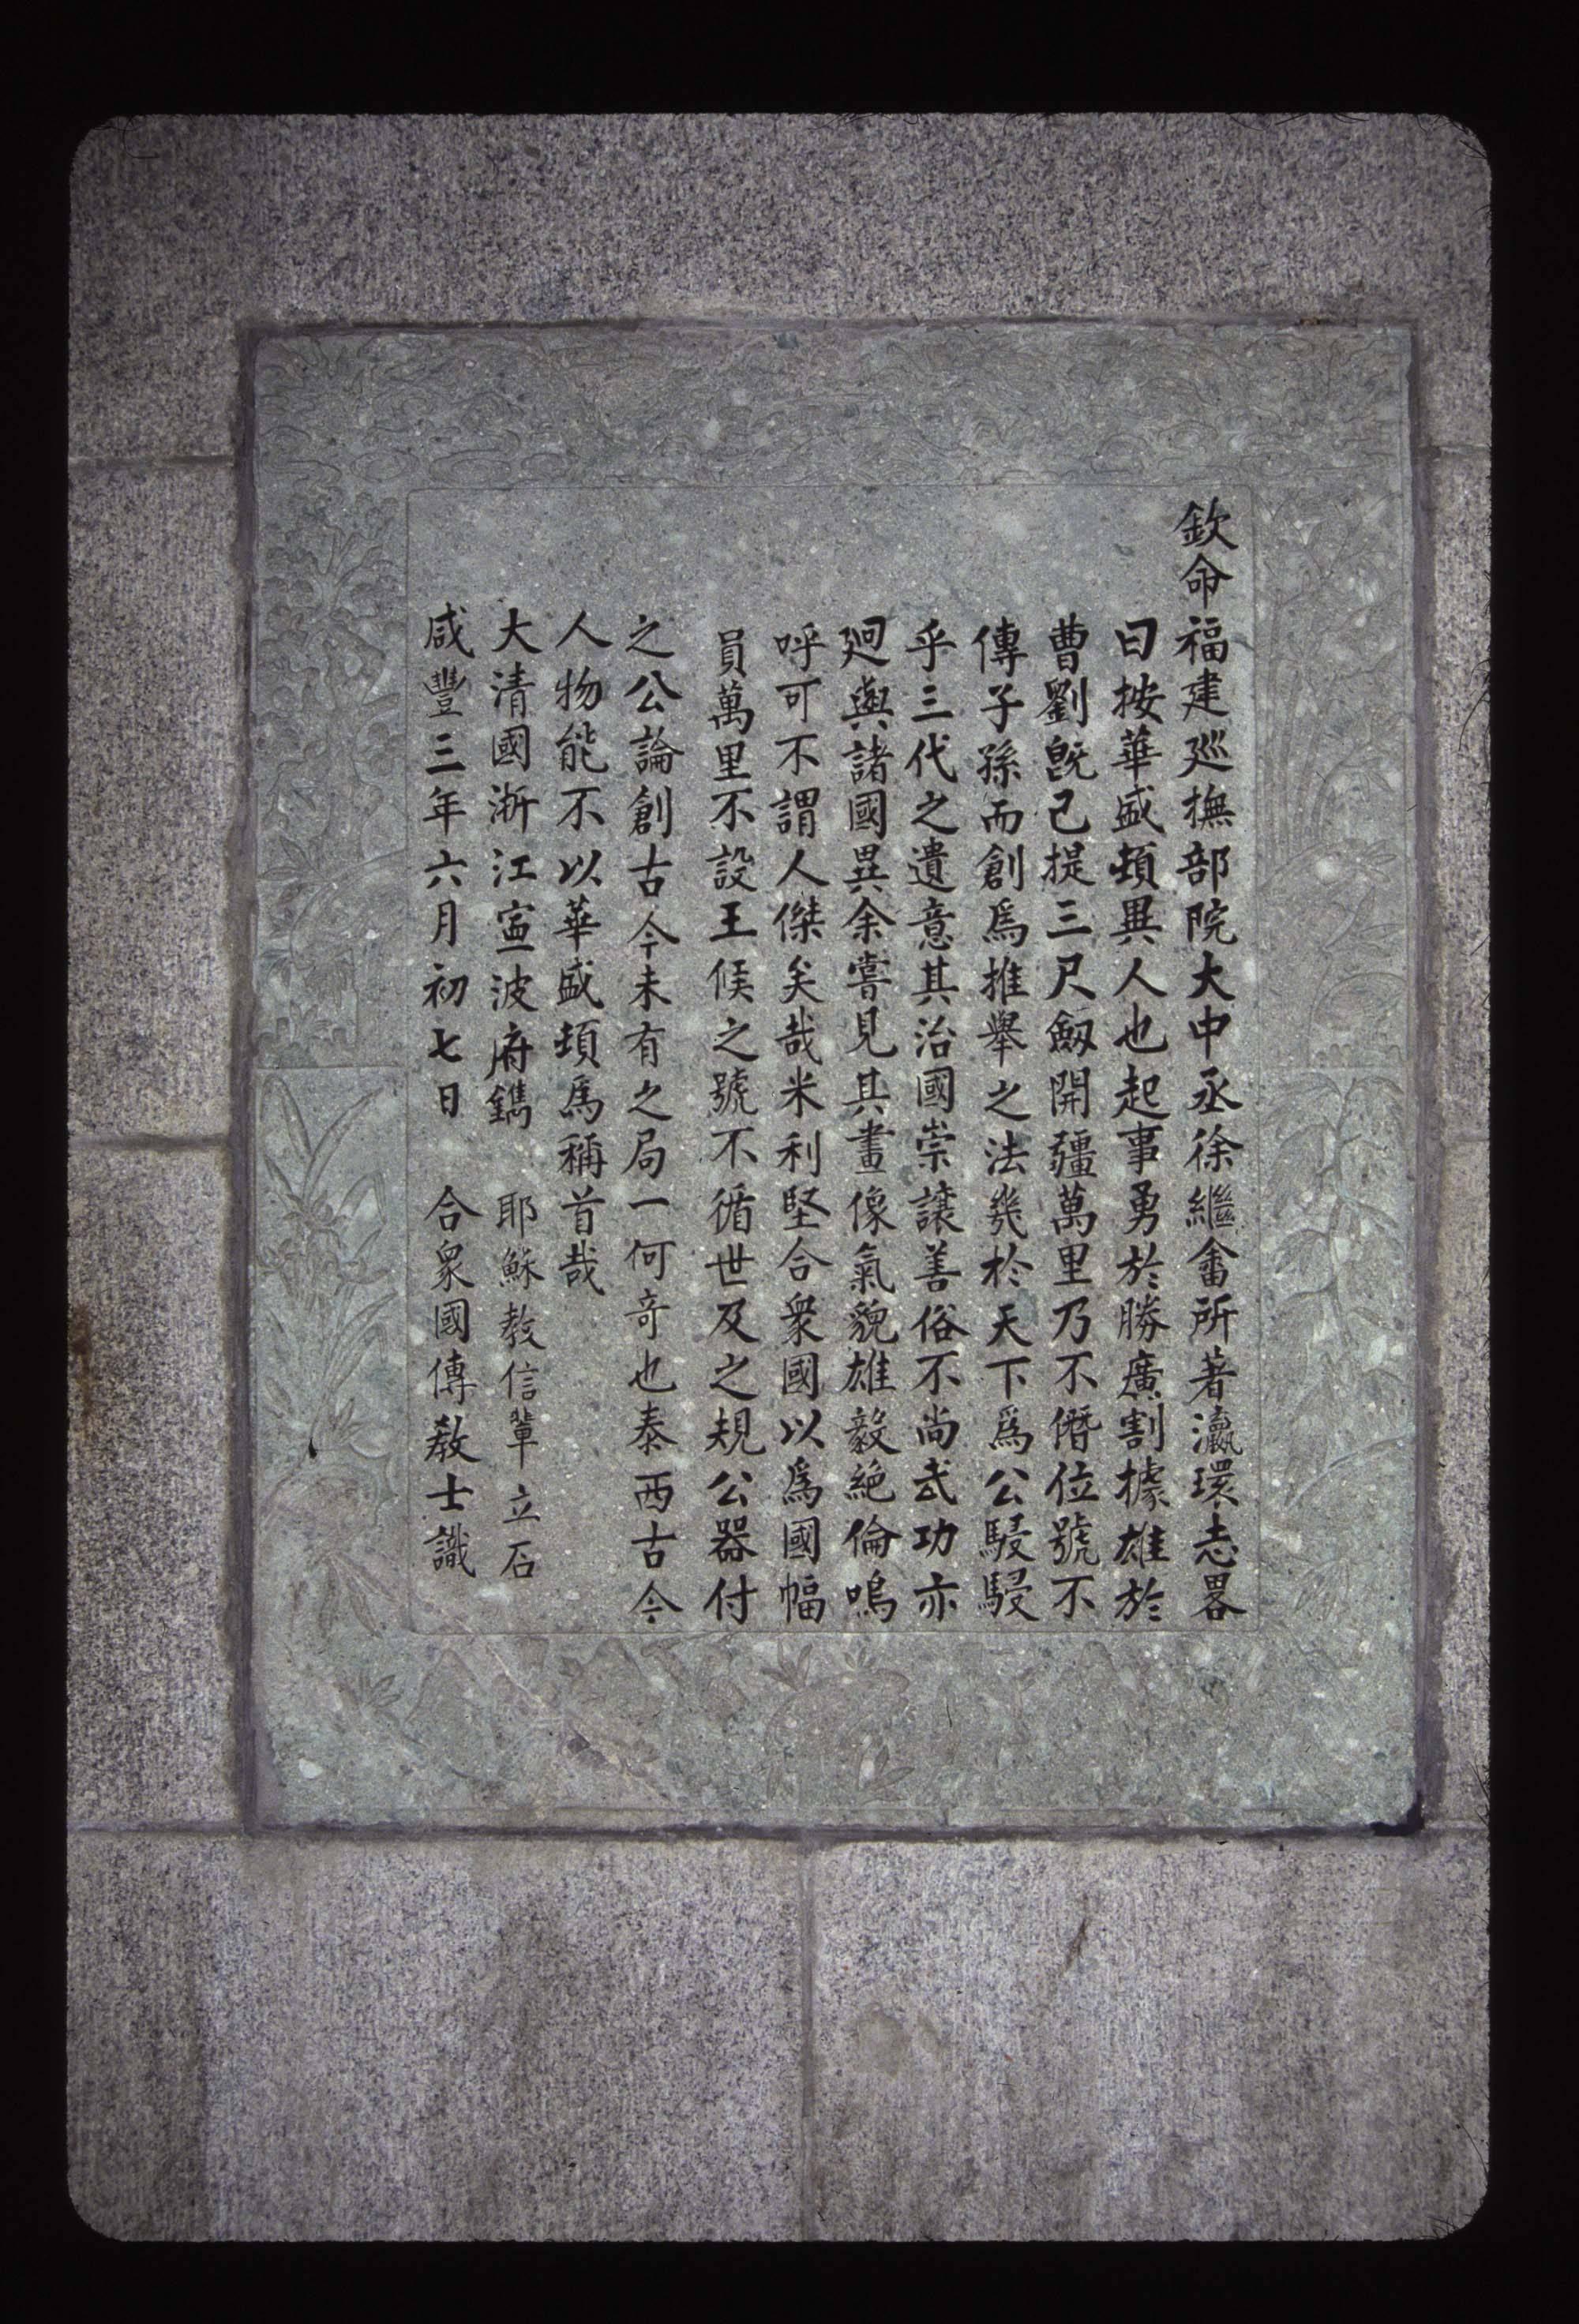 欽命福建巡撫部院大中丞徐繼畬所著瀛環志畧
曰按華盛頓異人也起事勇於勝廣割據雄於
曹劉旣己提三尺劔開疆萬里乃不僭位號不
傳子孫而創爲推舉之法幾於天下爲公駸駸
乎三代之遺意其治國崇讓善俗不尚武功亦
廻與諸國異余嘗見其畫像氣貌雄毅絕倫嗚
呼可不謂人傑矣哉米利堅合衆國以爲國幅
員萬里不設王侯之號不循世及之規公器付
之公論創古今未有之局一何奇也泰西古今
人物能不以華盛頓爲稱首哉
大清國浙江寧波府鐫 耶穌教信輩立石
咸豐三年六月初七日 合衆國傳教士識